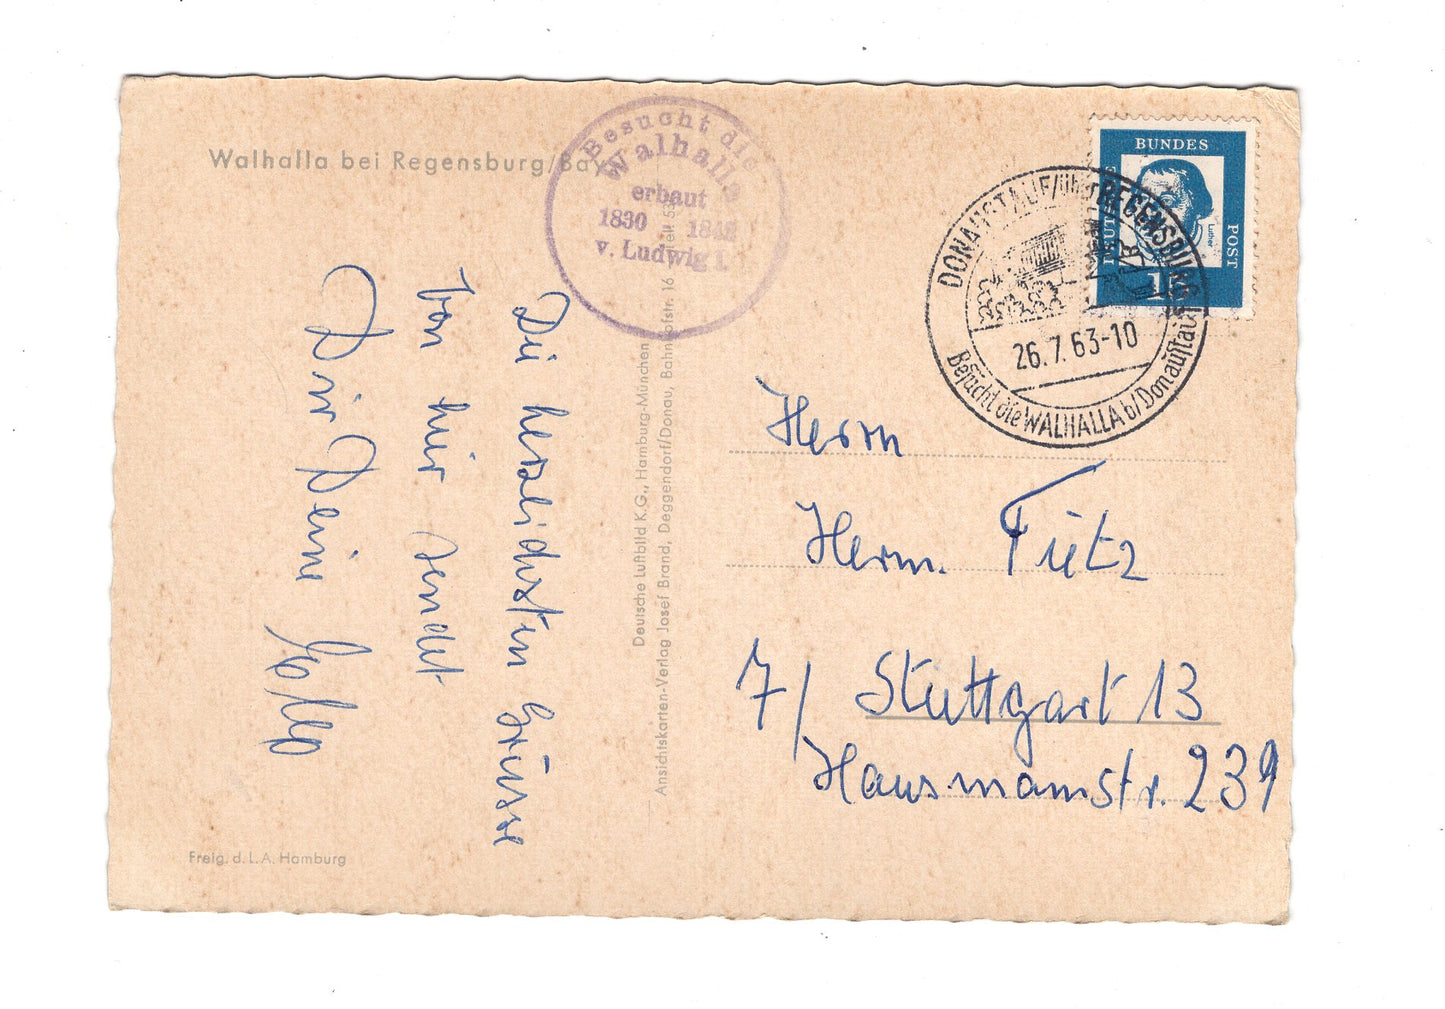 Walhalla bei Regensburg/Bay.
Besucht die
Walhalla
erbaut
1830 - 1842
v. Ludwig I.
Die herzlichsten Grüsse
von hier sendet
Dir Deine
Deutsche Luftbild K.G., Hamburg-München
Ansichtskarten-Verlag Josef Brand, Deggendorf/Donau, Bahnhofstr. 16
Freig. d. L.A. Hamburg
DEUTSCHE
BUNDES
POST
Luther
DONAUSTAUF/über REGENSBURG
26.7.63-10
Besucht die WALHALLA b/Donaustauf
Herrn
Herm. Tietz
7/ Stuttgart 13
Hausmannstr. 239